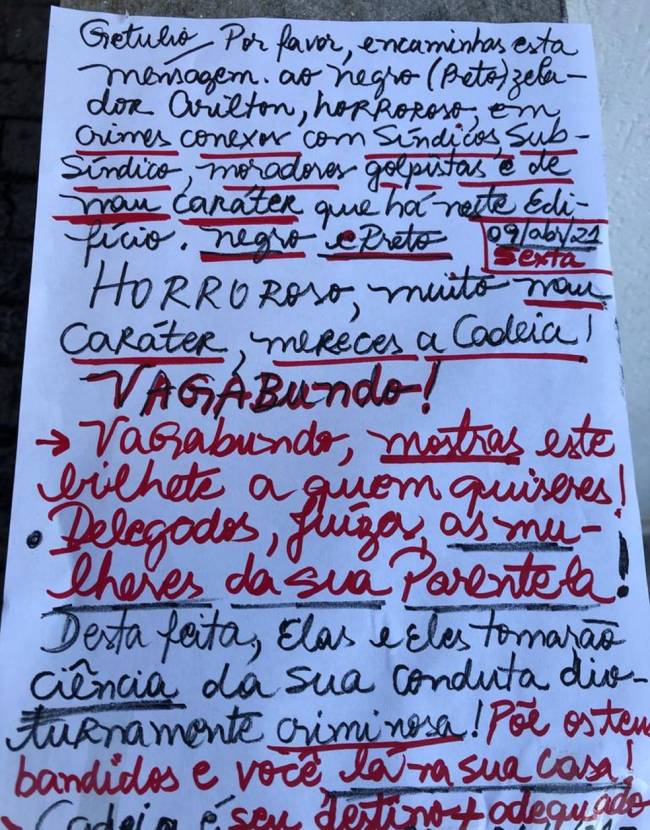 Getulio, Por favor, encaminhas esta
mensagem. ao negro (Preto) zela-
dor Arilton, horroroso, em
crimes conexos com Síndicos, Sub-
Síndico, moradores golpistas e de
mau caráter que há neste Edi-
fício. negro e Preto
09/abr/21
Sexta
HORROROSO, muito mau
Caráter, mereces a Cadeia!
VAGABundo!
→ Vagabundo, mostras este
bilhete a quem quiseres!
Delegados, juíza, as mu-
lheres da sua Parentela!
Desta feita, Elas e Eles tomarão
ciência da sua conduta diu-
turnamente criminosa! Põe os teus
bandidos e você lá na sua casa!
Cadeia é seu destino + adequado